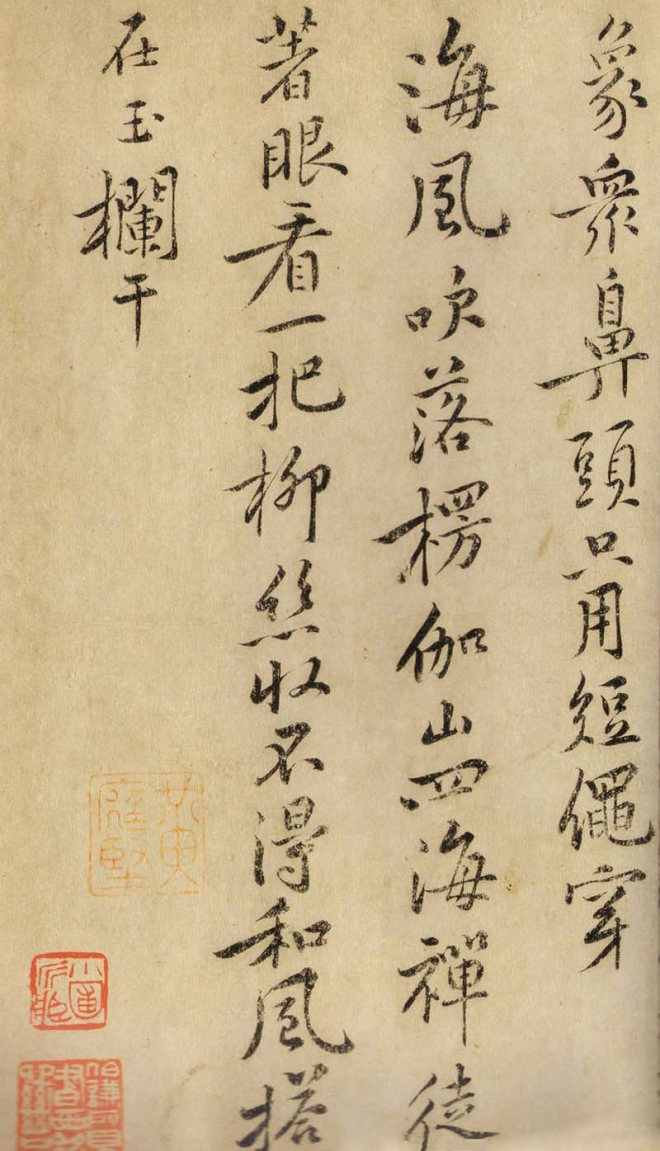 象衆鼻頭只用短繩穿
海風吹落楞伽山四海禪徒
著眼看一把柳絲收不得和風搭
在玉欄干